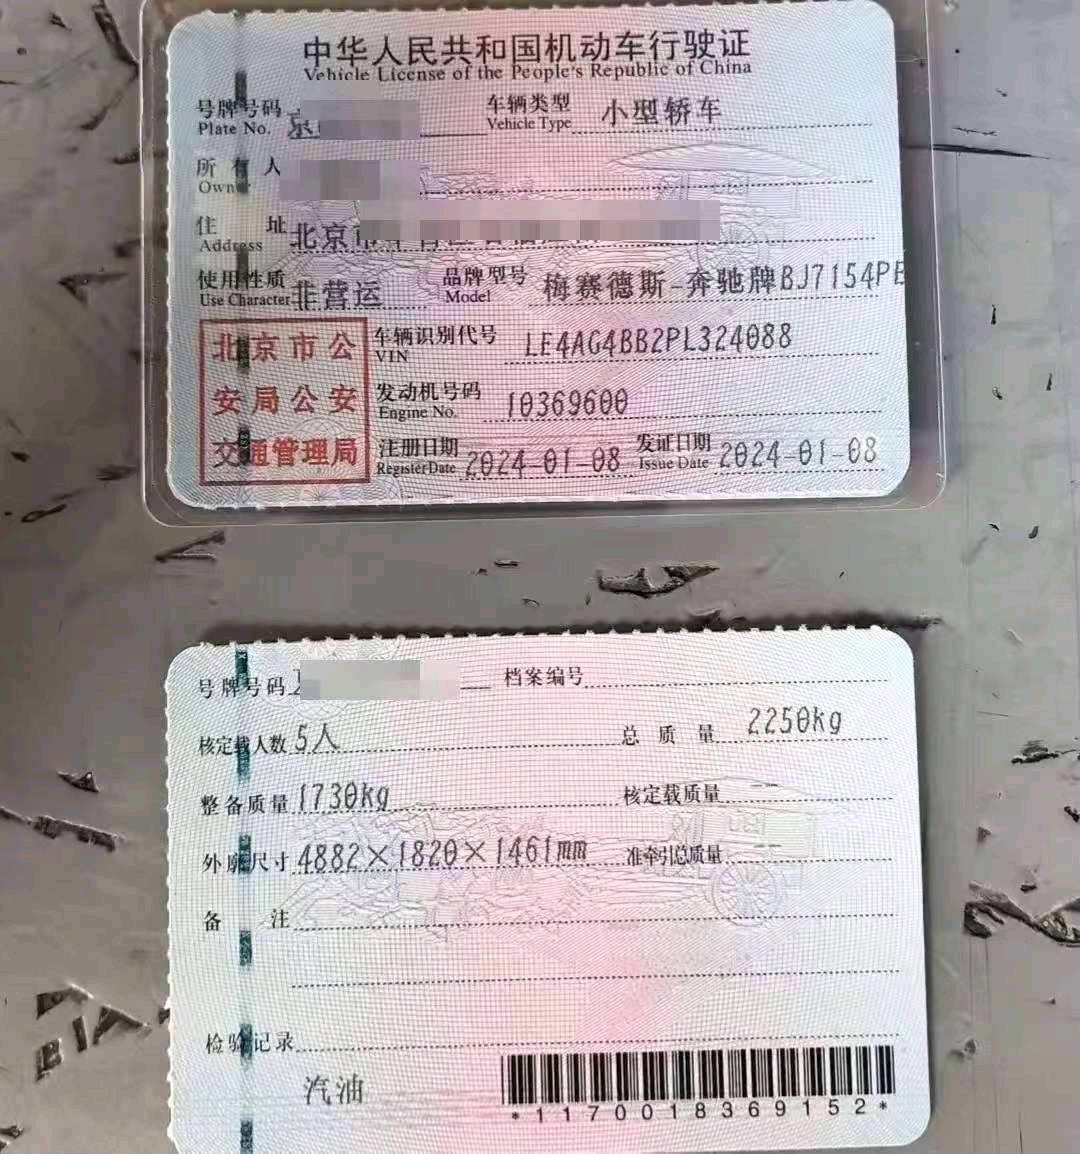 中华人民共和国机动车行驶证
Vehicle License of the People's Republic of China
号牌号码 京 车辆类型 小型轿车
Plate No. Vehicle Type
所有人
Owner
住址 北京市
Address
使用性质 非营运 品牌型号 梅赛德斯-奔驰牌BJ7154PE
Use Character Model
北京市公
安局公安
交通管理局
车辆识别代号 LE4AG4BB2PL324088
VIN
发动机号码 10369600
Engine No.
注册日期 2024-01-08 发证日期 2024-01-08
Register Date Issue Date
号牌号码 档案编号
核定载人数 5人 总质量 2250kg
整备质量 1730kg 核定载质量 --
外廓尺寸 4882×1820×1461mm 准牵引总质量 --
备注
检验记录
汽油
*1170018369152*